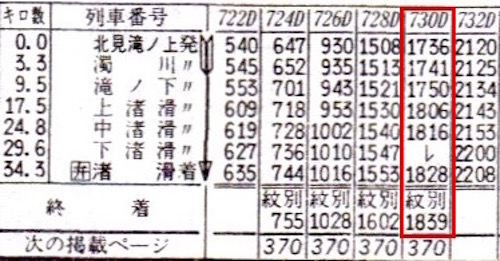 キロ数 列車番号 722D 724D 726D 728D 730D 732D
0.0 北見滝ノ上発 540 647 930 1508 1736 2120
3.3 濁川〃 545 652 935 1513 1741 2125
9.5 滝ノ下〃 553 701 943 1521 1750 2134
17.5 上渚滑〃 609 718 953 1530 1806 2143
24.8 中渚滑〃 619 728 1002 1540 1816 2153
29.6 下渚滑〃 627 736 1010 1547 レ 2200
34.3 弁渚滑着 635 744 1016 1553 1828 2208
終着 紋別 紋別 紋別 紋別
755 1028 1602 1839
次の掲載ページ 370 370 370 370